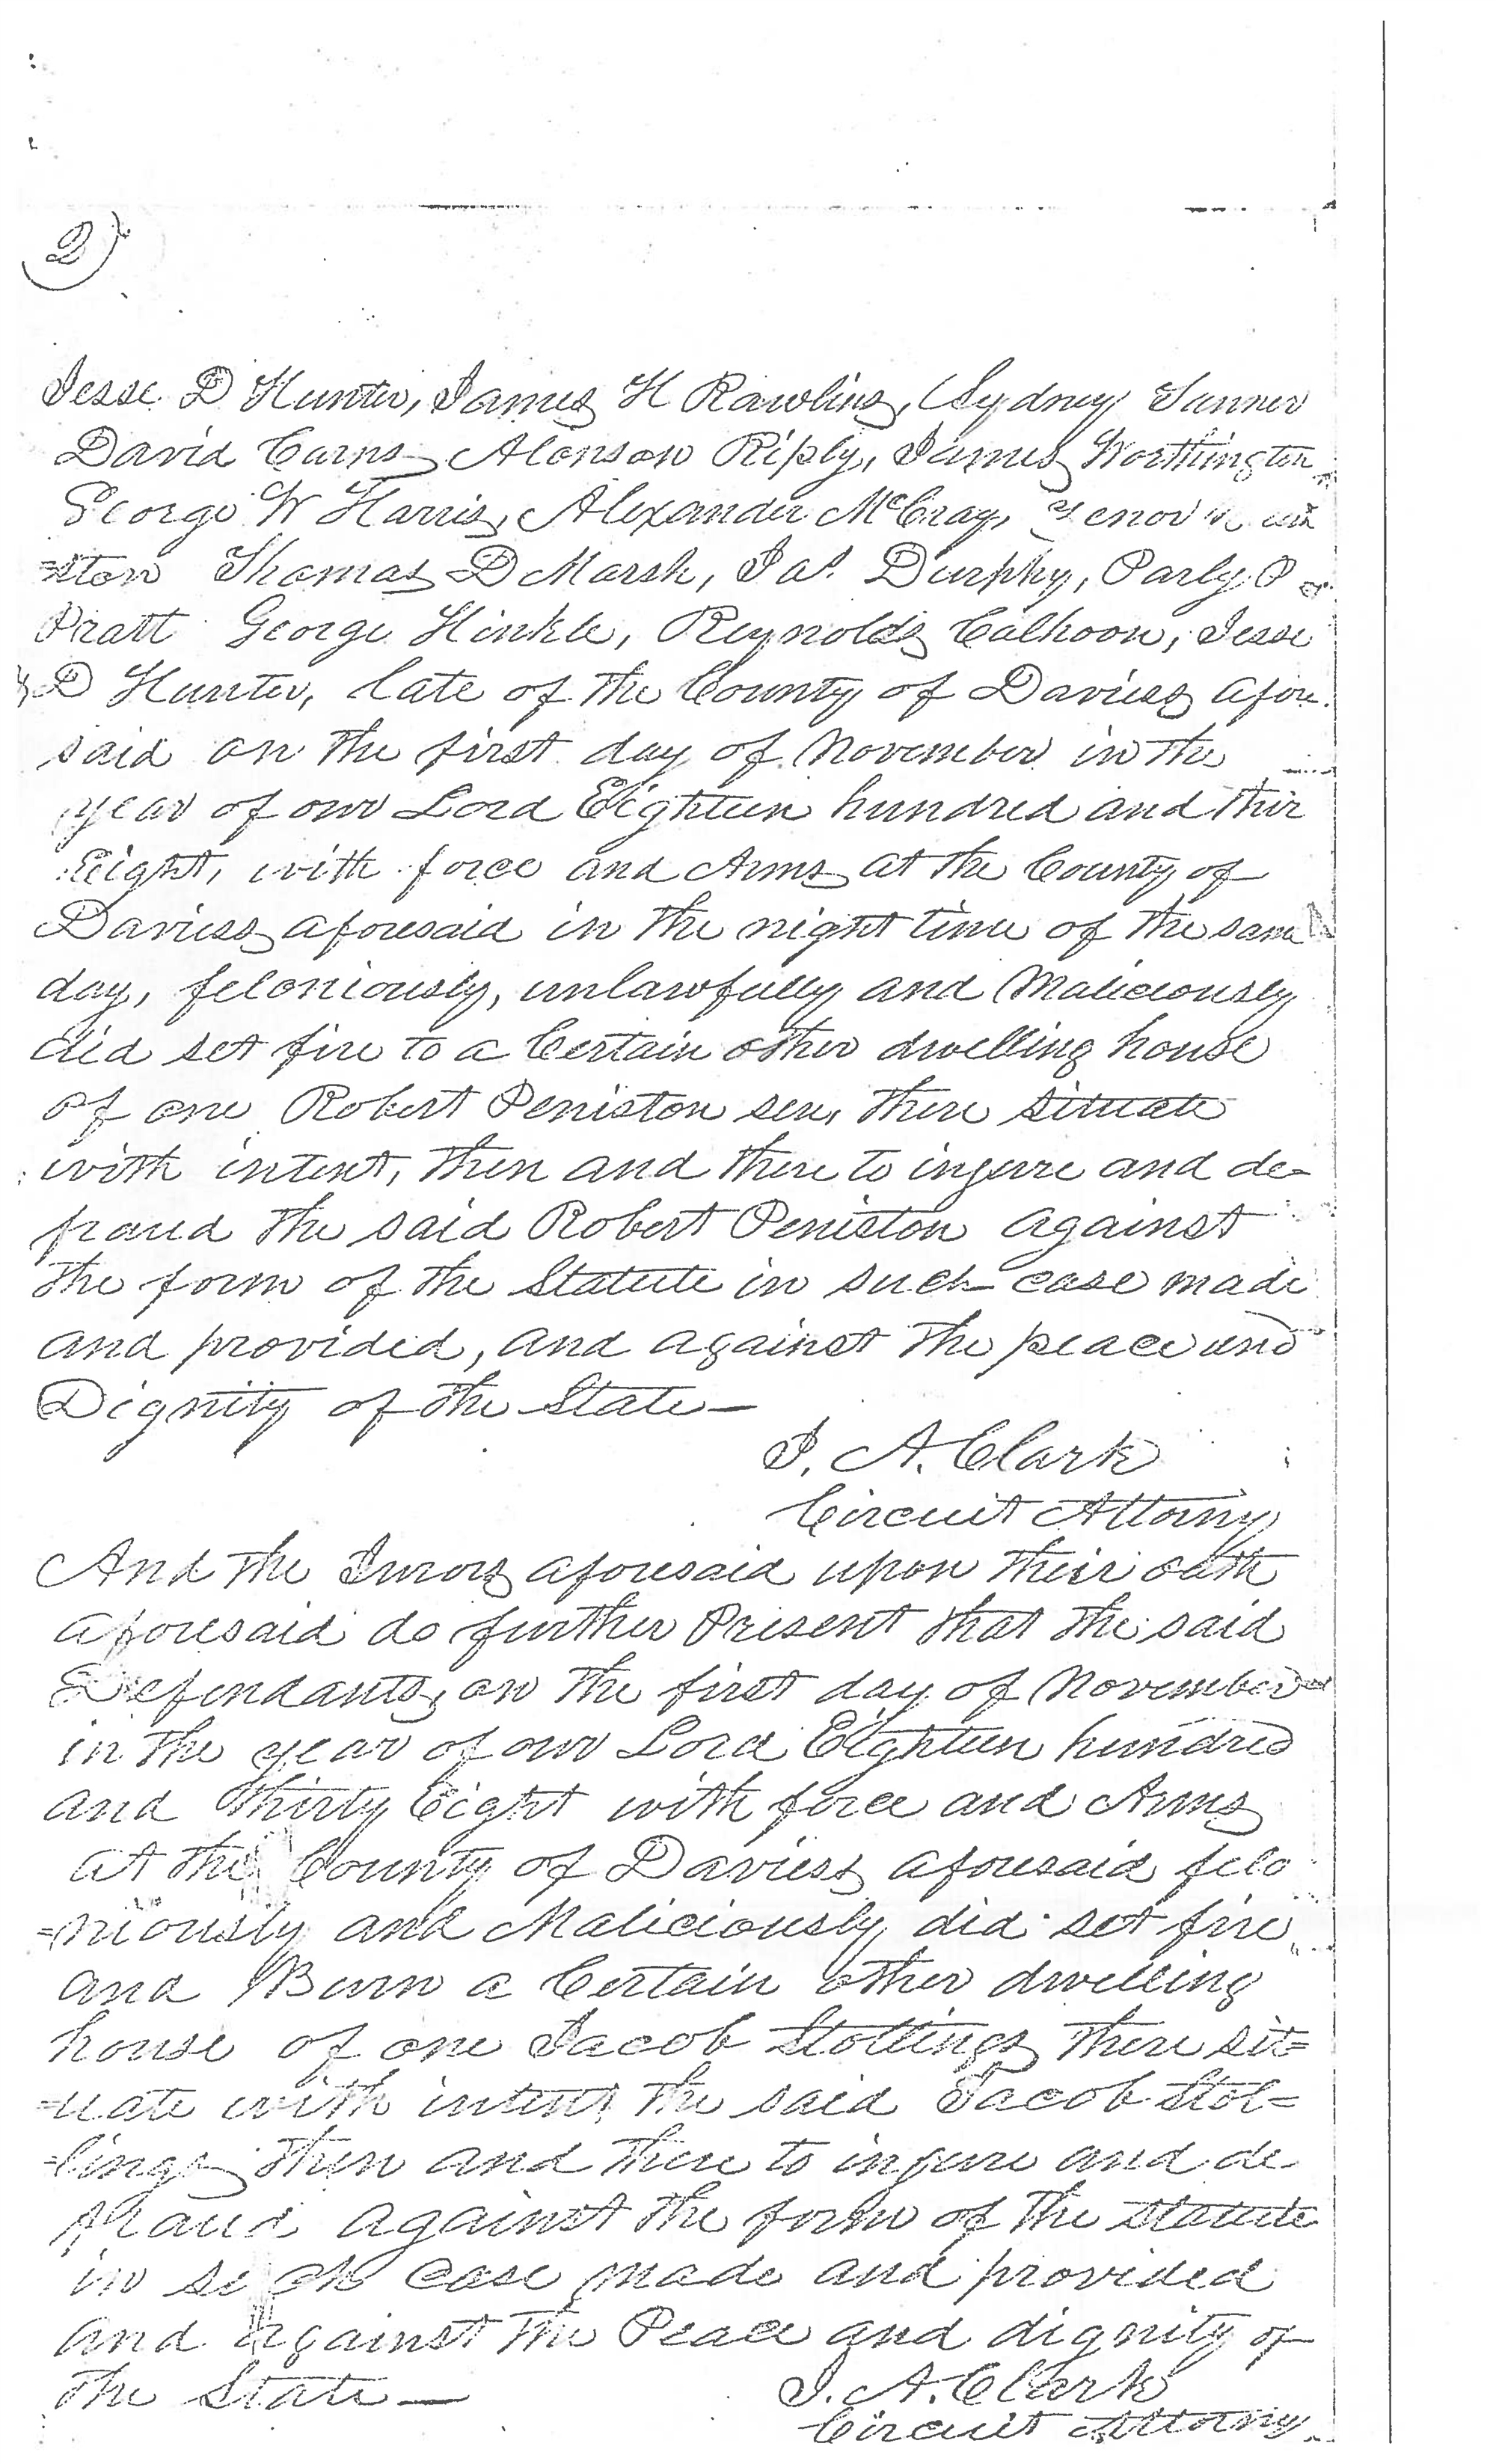 2)
Jesse D Hunter, James H Rawlins, Sydney Tanner
David Carns Alonson Riply, James Worthington
George W Harris, Alexander McCray,
=ston Thomas D Marsh, Jas. Durphy, Parly P
Pratt George Hinkle, Reynolds Calhoon, Jesse
D Hunter, late of the County of Daviess afore
said on the first day of November in the
year of our Lord Eighteen hundred and thir
Eight, with force and Arms at the County of
Daviess aforesaid in the night time of the same
day, feloniously, unlawfully and Maliciously
did set fire to a Certain other dwelling house
of one Robert Peniston sen, there situate
with intent, then and there to injure and de=
fraud the said Robert Peniston against
the form of the Statute in such case made
and provided, and against the peace and
Dignity of the State—
J. A. Clark
Circuit Attorny
And the Jurors aforesaid upon their oath
aforesaid do further Present that the said
Defendants, on the first day of November
in the year of our Lord Eighteen hundred
and Thirty Eight with force and Arms
at the County of Daviess aforesaid felo
=niously and Maliciously did set fire
and Burn a Certain other dwelling
house of one Jacob Stollings there sit=
=uate with intent the said Jacob Stol=
=lings then and there to injure and de
fraud against the form of the statute
in such case made and provided
and against the Peace and dignity of
the State—
J. A. Clark
Circuit Attorny